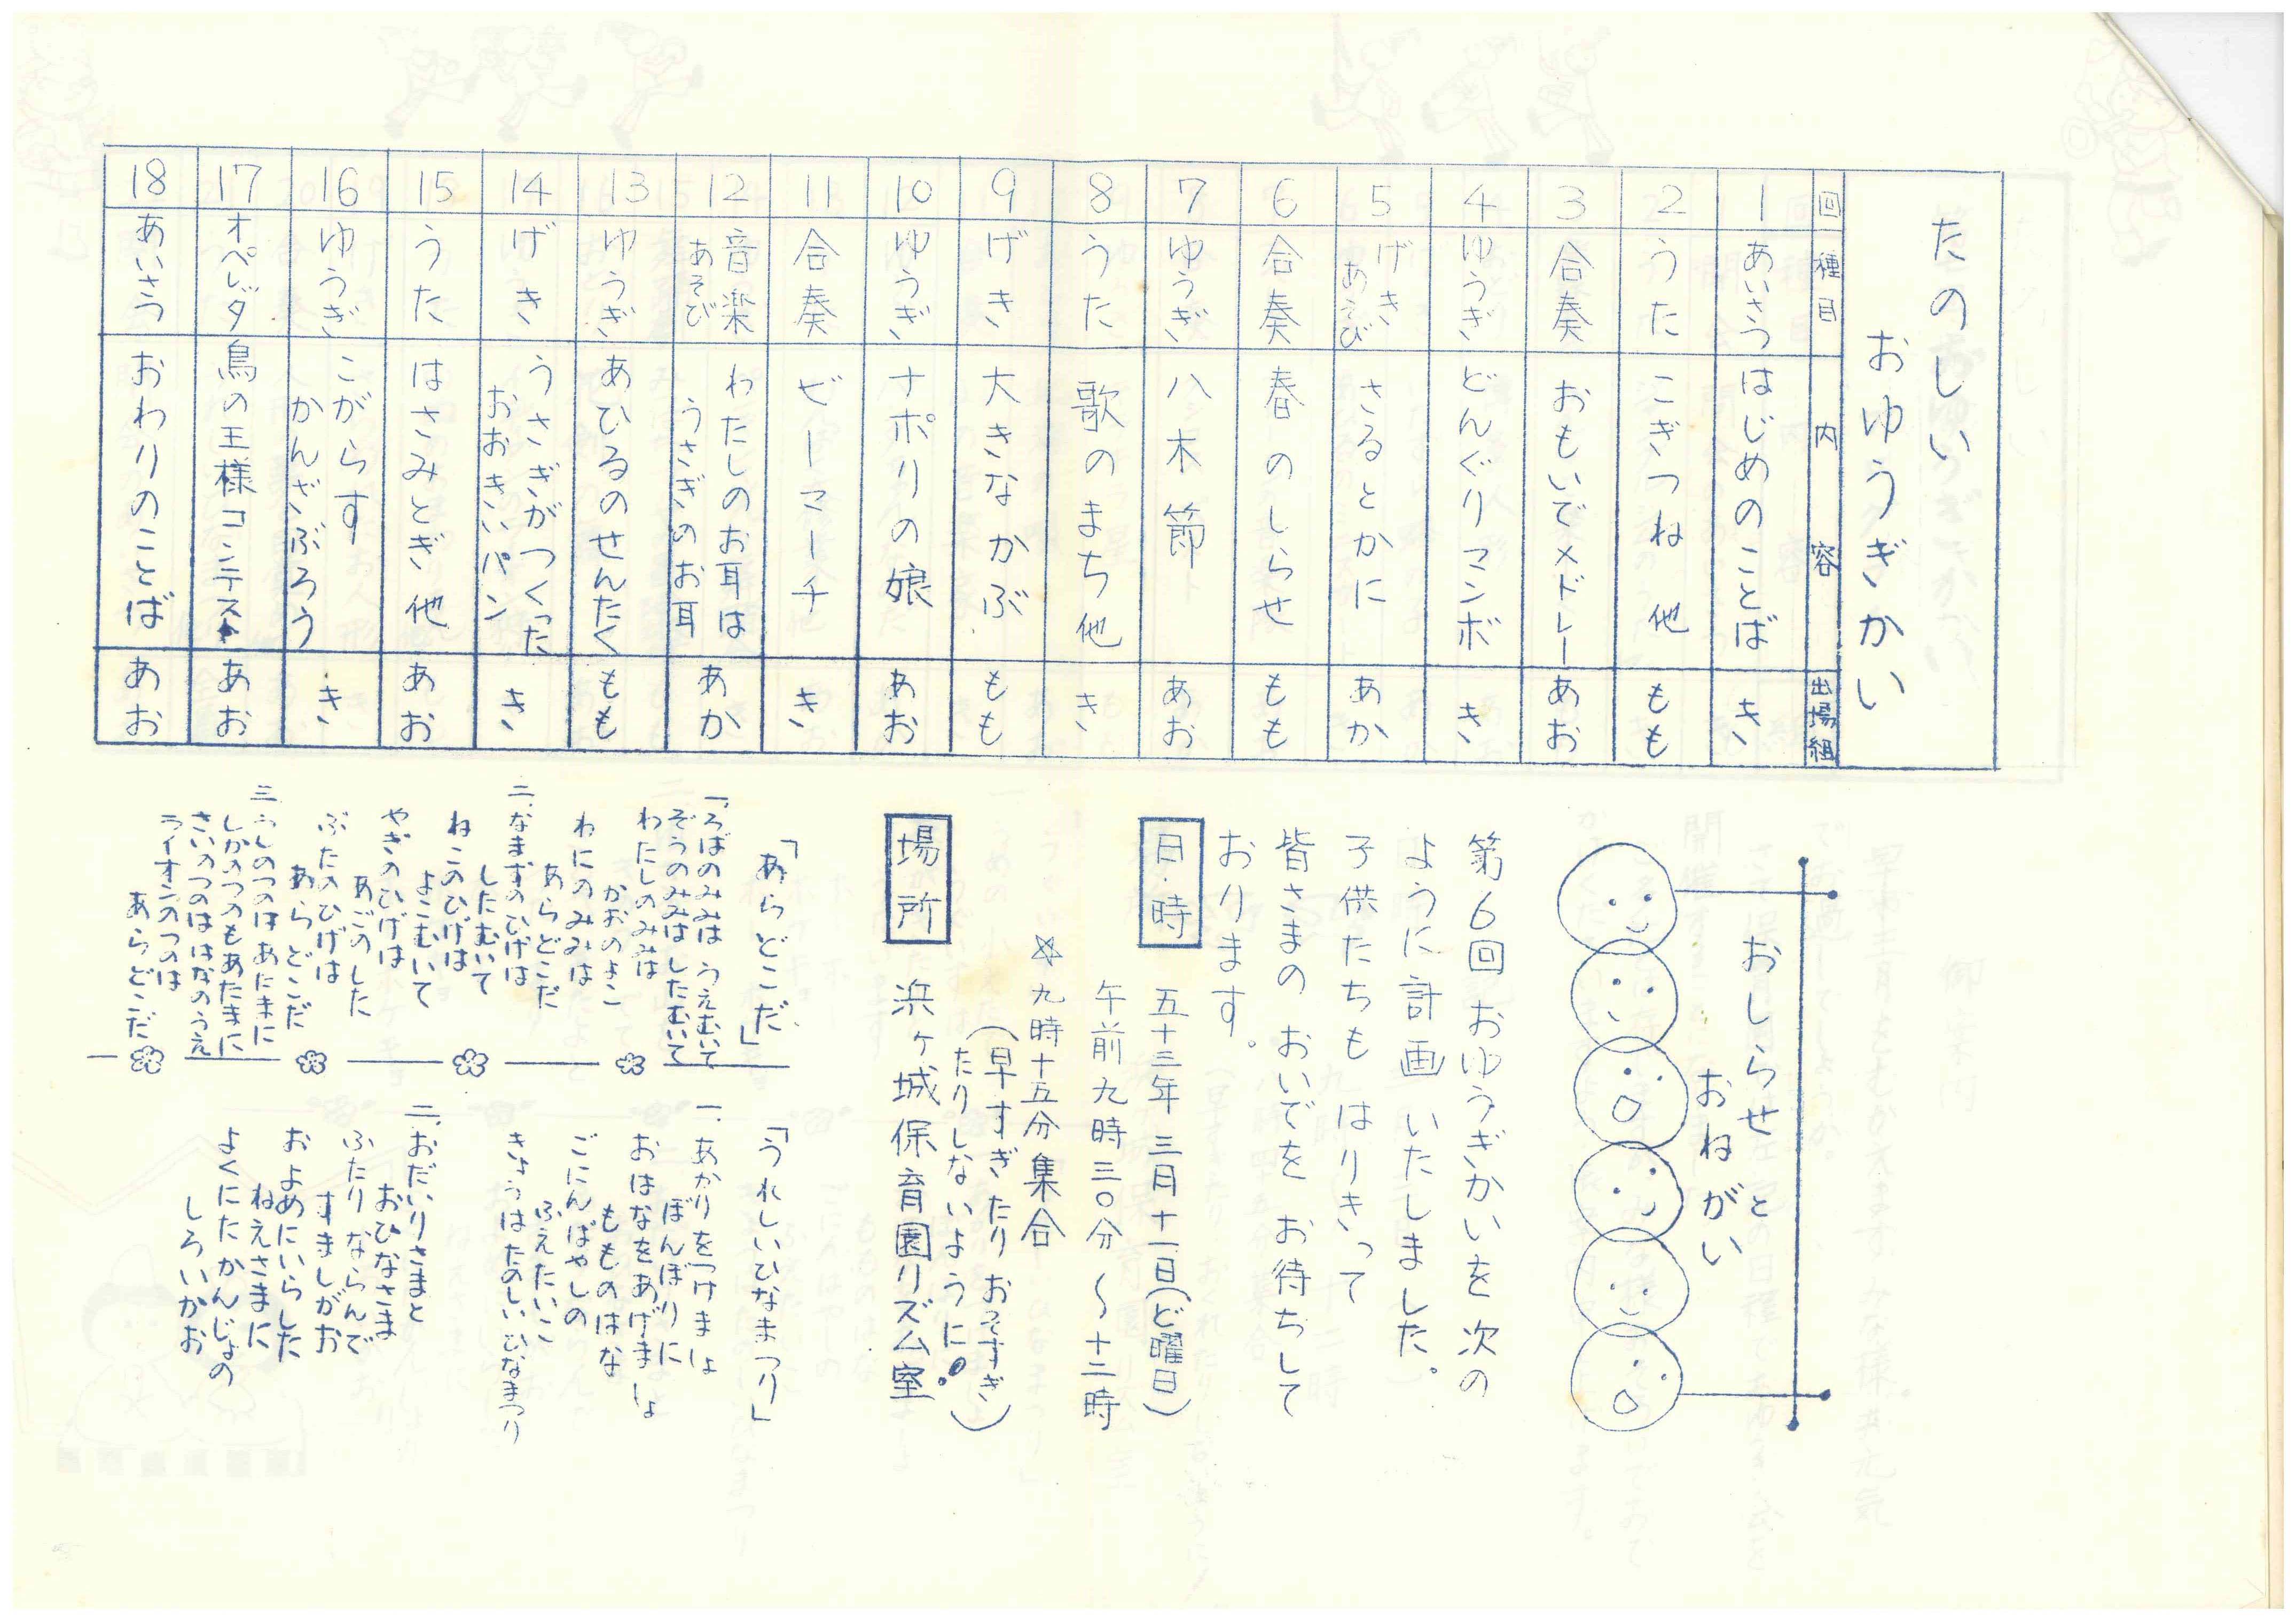 たのしい
おゆうぎかい
回 種目 内容 出場組
1 あいさつ はじめのことば き
2 うた こぎつね 他 もも
3 合奏 おもいでメドレー あお
4 ゆうぎ どんぐりマンボ き
5 げきあそび さるとかに あか
6 合奏 春のしらせ もも
7 ゆうぎ 八木節 あお
8 うた 歌のまち他 き
9 げき 大きなかぶ もも
10 ゆうぎ ナポリの娘 あお
11 合奏 ビーマーチ き
12 音楽あそび わたしのお耳は
うさぎのお耳 あか
13 ゆうぎ あひるのせんたく もも
14 げき うさぎがつくった
おおきいパン き
15 うた はさみとぎ 他 あお
16 ゆうぎ こがらす
かんざぶろう き
17 オペレッタ 鳥の王様コンテスト あお
18 あいさつ おわりのことば あお
おしらせと
おねがい
第6回おゆうぎかいを次の
ように計画いたしました。
子供たちもはりきって
皆さまのおいでをお待ちして
おります。
日・時 五十三年三月十一日(ど曜日)
午前九時三〇分〜十二時
☆九時十五分集合
(早すぎたりおそすぎ
たりしないように。)
場所 浜ヶ城保育園リズム室。
「あらどこだ」
一、ろばのみみは うえむいて
ぞうのみみは したむいて
わたしのみみは
かおのよこ
わにのみみは
あらどこだ
二、なまずのひげは
したむいて
ねこのひげは
よこむいて
やぎのひげは
あごのした
ぶたのひげは
あらどこだ
三、うしのつのは あたまに
しかのつのもあたまに
さいのつのははなのうえ
ライオンのつのは
あらどこだ
「うれしいひなまつり」
一、あかりをつけましょ
ぼんぼりに
おはなをあげましょ
もものはな
ごにんばやしの
ふえたいこ
きょうはたのしいひなまつり
二、おだいりさまと
おひなさま
ふたりならんで
すましがお
およめにいらした
ねえさまに
よくにたかんじょの
しろいかお